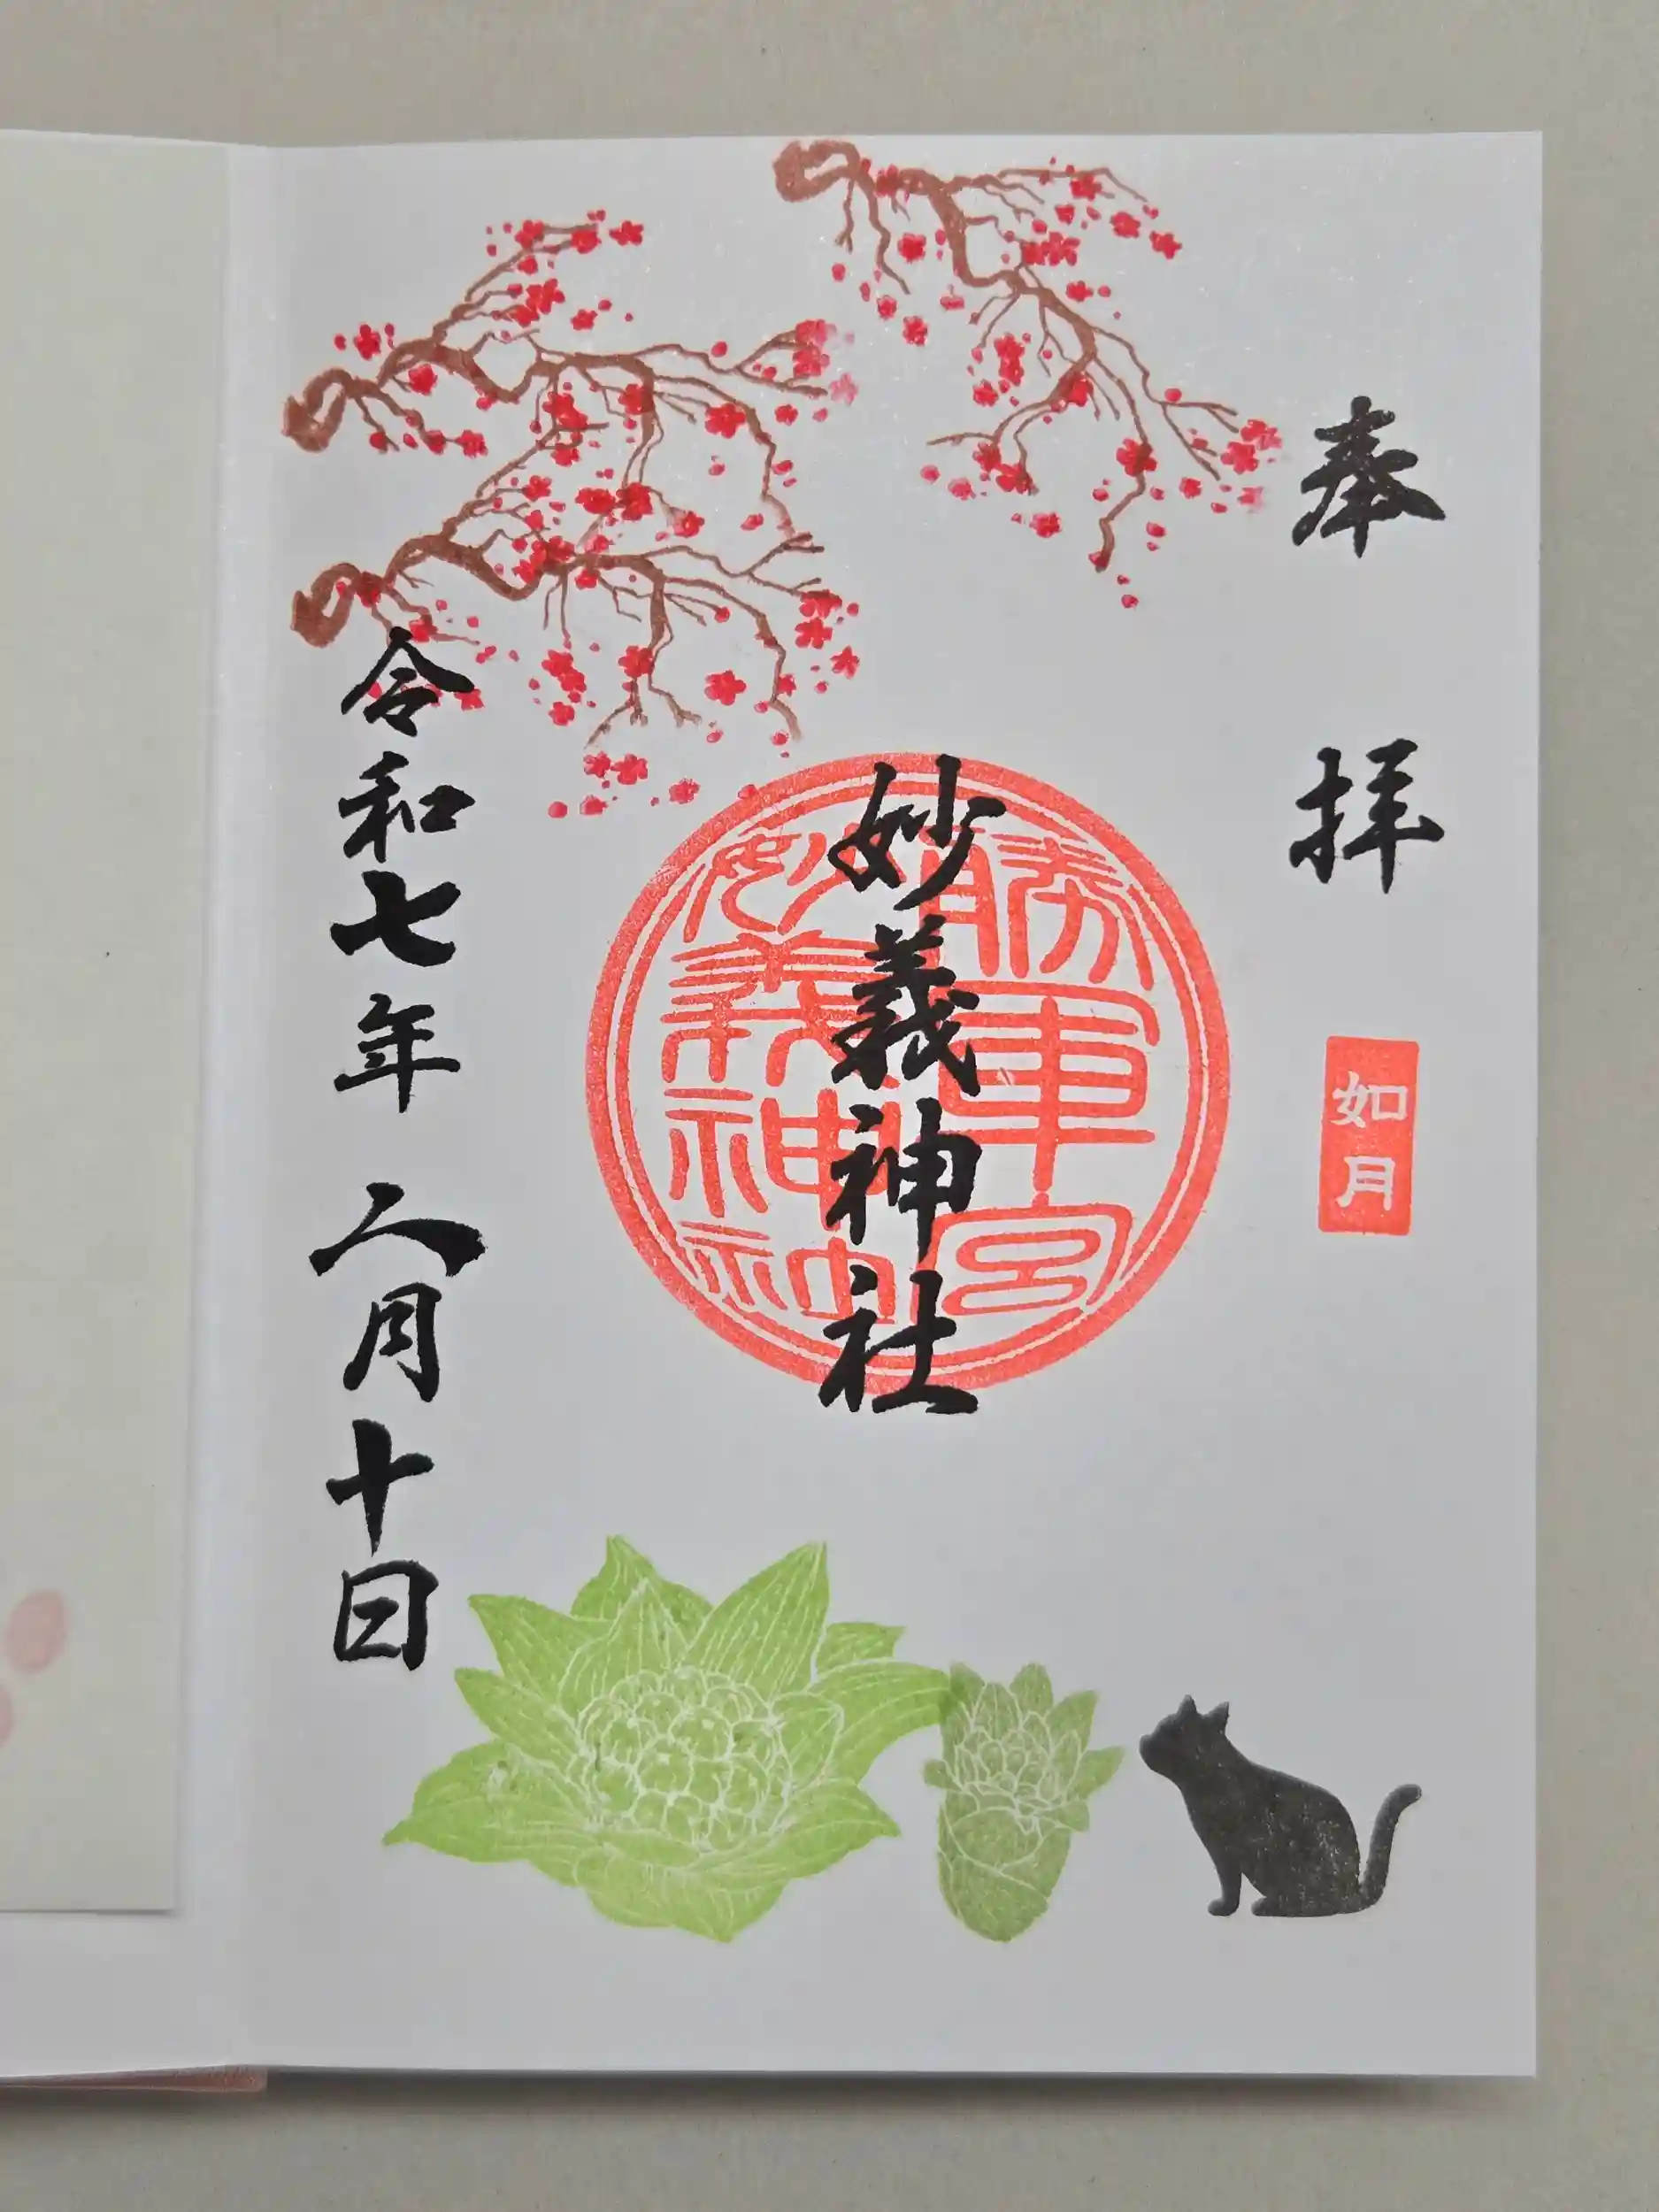 奉拝
如月
妙義神社
勝軍宮
妙義神
令和七年二月十日